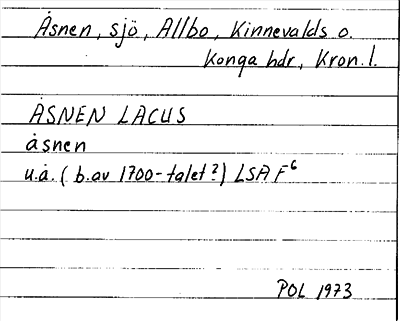 Åsnen, sjö, Allbo, Kinnevalds o.
Konga hdr, Kron. l.
ÅSNEN LACUS
åsnen
u.å. ( b. av 1700-talet?) LSA F⁶
POL 1973